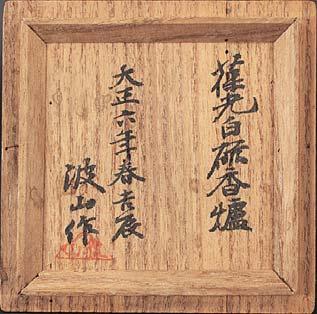 葆光白磁香爐
大正六年春吉辰
波山作